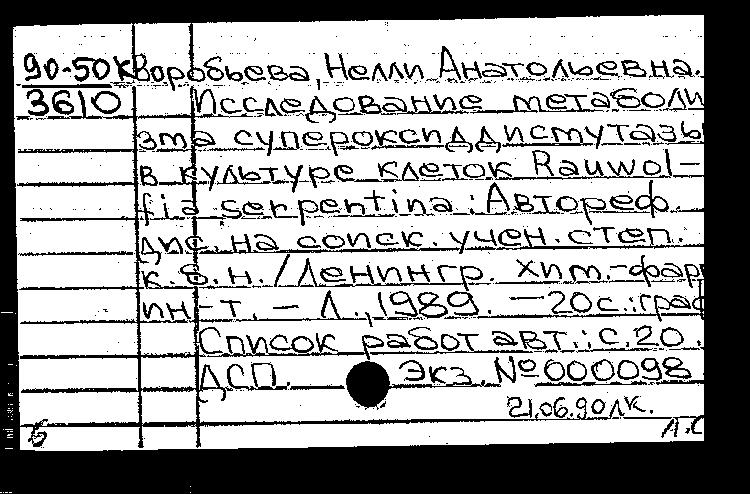 90-50К Воробьева, Нелли Анатольевна.
3610 Исследование метаболи
зма супероксиддисмутазы
в культуре клеток Rauwol-
fia serpentina : Автореф.
дис. на соиск. учен. степ.
к.б.н. / Ленингр. хим.-фарм
ин-т. - Л., 1989. - 20 с. : граф
Список работ авт.: с. 20.
ДСП. Экз. № 000098
21.06.90 лк.
Б А.С